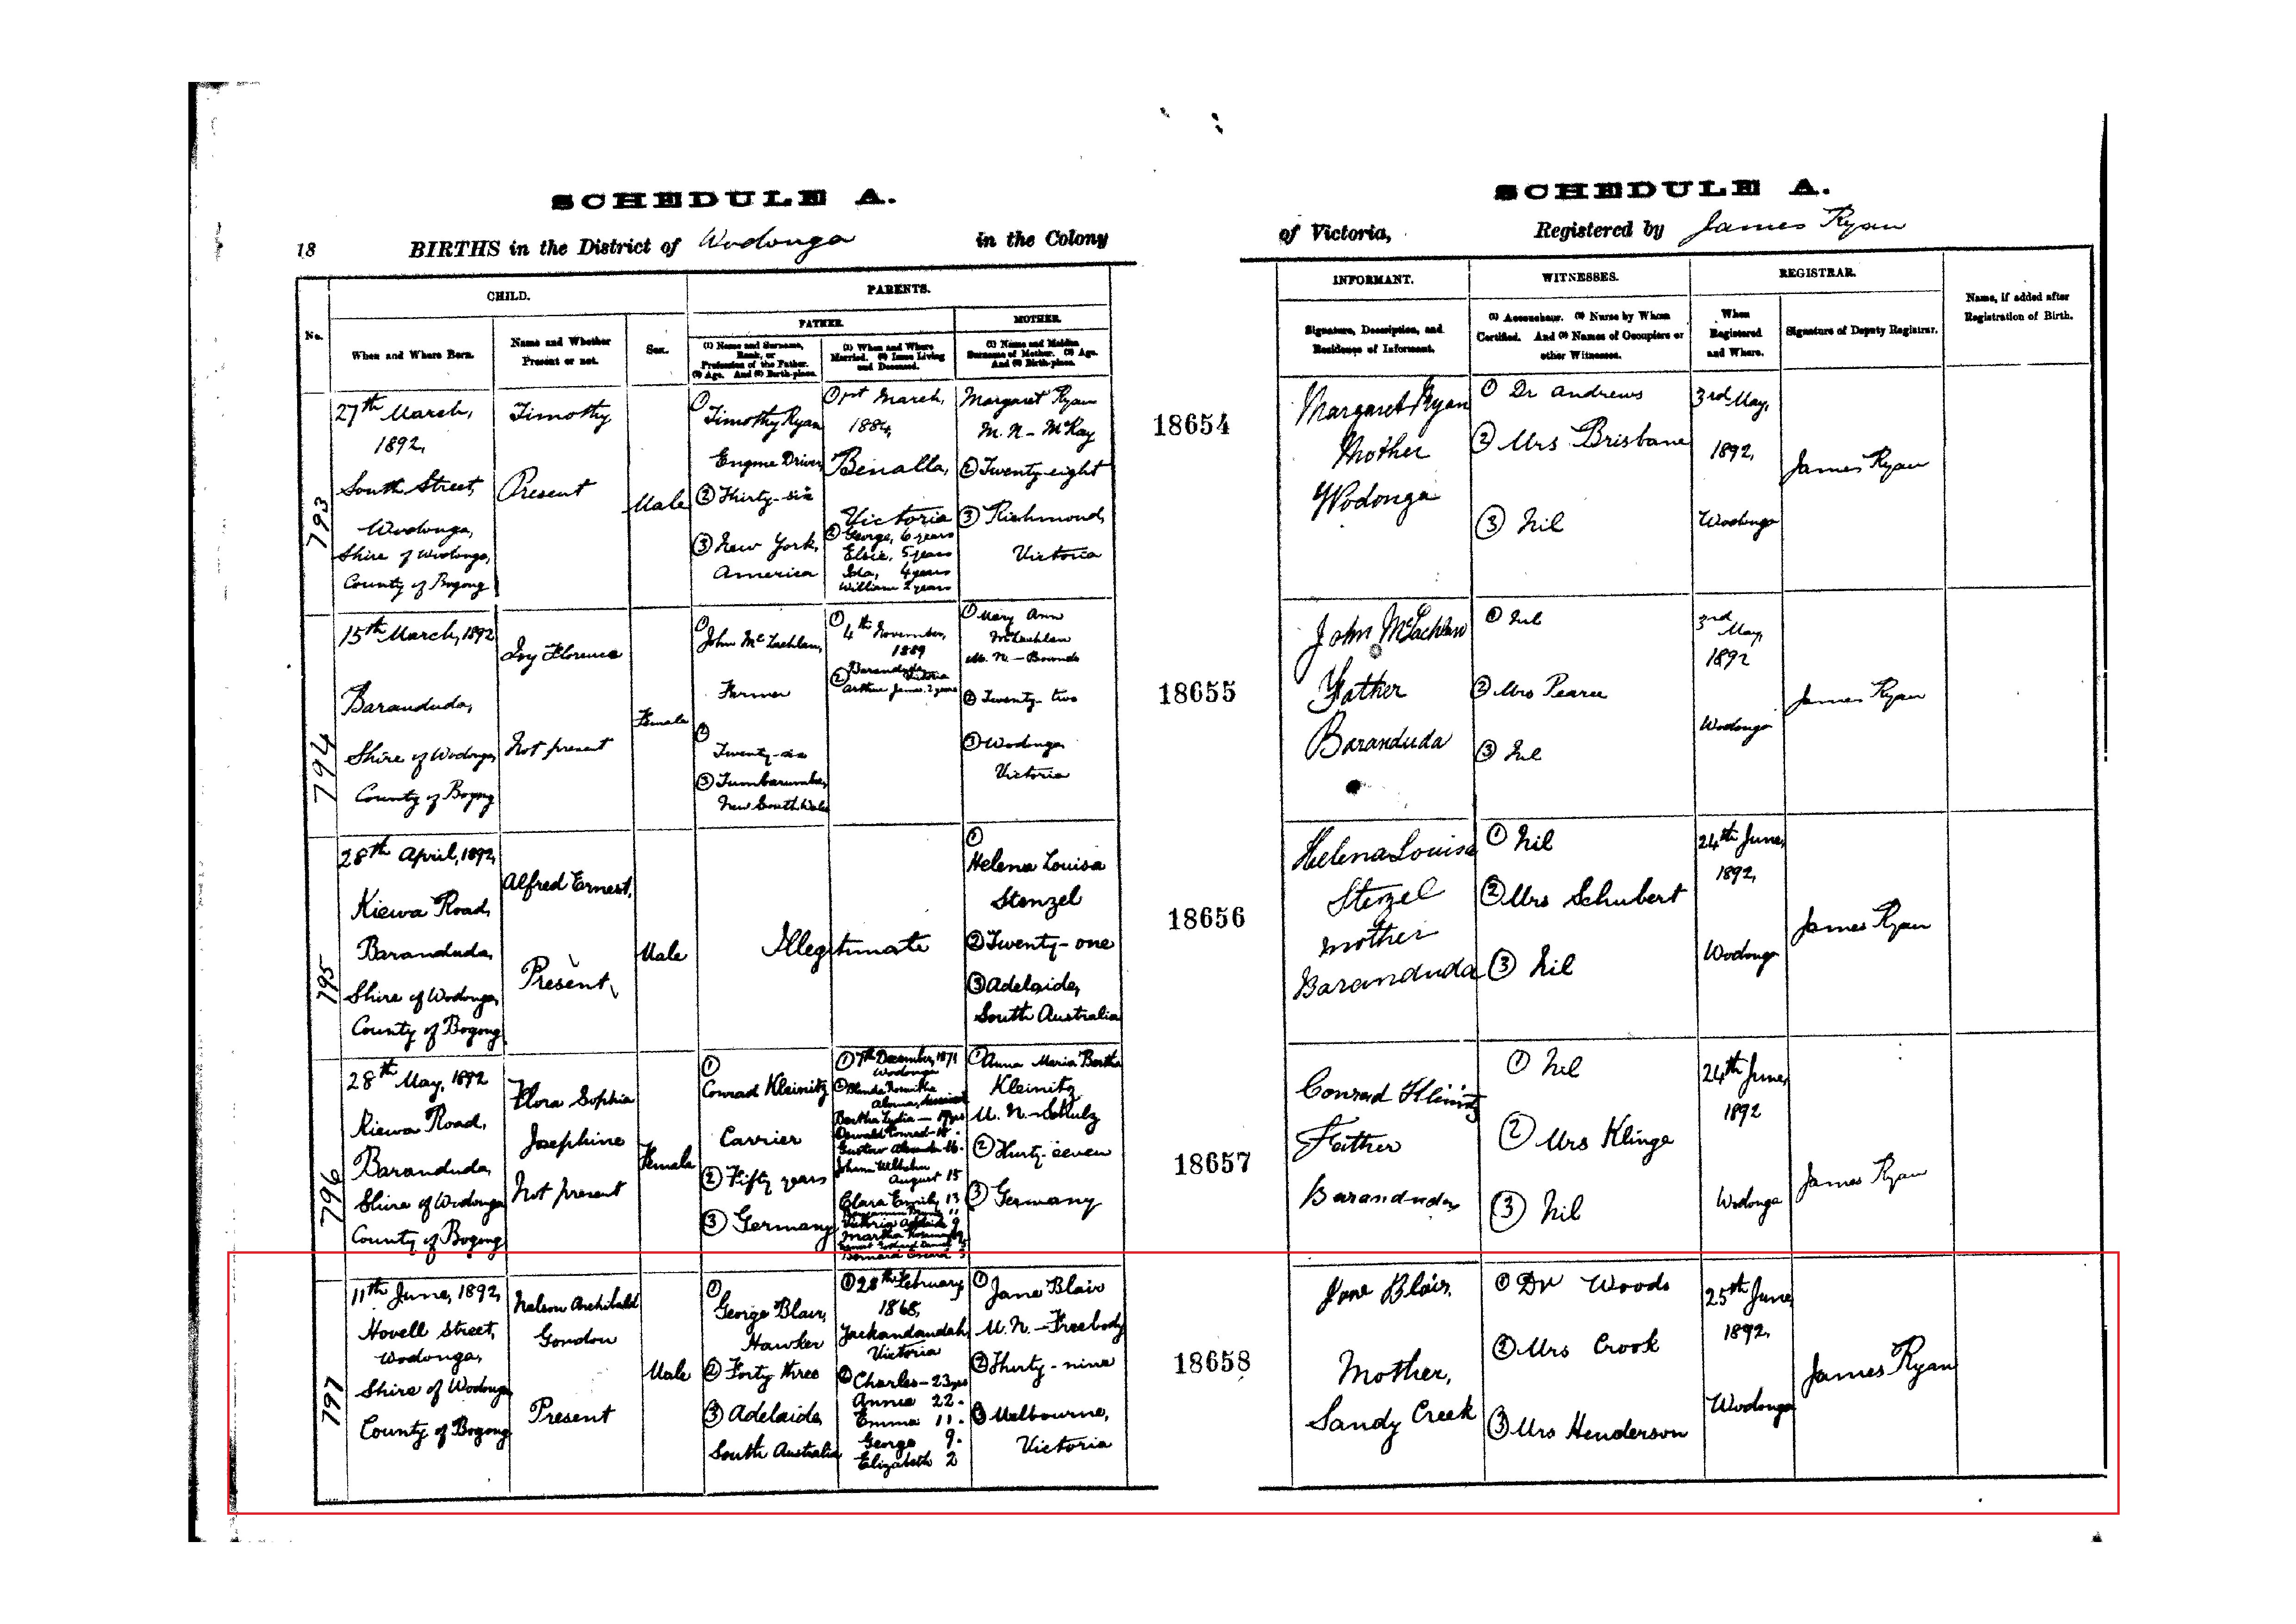 SCHEDULE A.
18 BIRTHS in the District of Wodonga in the Colony
No.
CHILD.
PARENTS.
FATHER.
MOTHER.
When and Where Born.
Name and Whether Present or not.
Sex.
(1) Name and Surname, Rank, or Profession of the Father. (2) Age. And (3) Birth-place.
(1) When and Where Married. (2) Issue Living and Deceased.
(1) Name and Maiden Surname of Mother. (2) Age. And (3) Birth-place.
SCHEDULE A.
of Victoria, Registered by James Ryan
INFORMANT.
WITNESSES.
REGISTRAR.
Signature, Description, and Residence of Informant.
(1) Accoucheur. (2) Nurse by Whom Certified. And (3) Names of Occupiers or other Witnesses.
When Registered and Where.
Signature of Deputy Registrar.
Name, if added after Registration of Birth.
793
27th March,
1892,
South Street,
Wodonga,
Shire of Wodonga,
County of Bogong
Timothy
Present
Male
①
Timothy Ryan
Engine Driver
② Thirty-six
③ New York,
America
① 1st March,
1884,
Benalla,
Victoria
② George, 6 years
Elsie, 5 years
Ida, 4 years
William 2 years
Margaret Ryan
M.N - McKay
② Twenty eight
③ Richmond,
Victoria
18654
Margaret Ryan
Mother
Wodonga
① Dr Andrews
② Mrs Brisbane
③ Nil
3rd May,
1892,
Wodonga
James Ryan
794
15th March, 1892
Baranduda,
Shire of Wodonga
County of Bogong
Ivy Florence
Not present
Female
①
John McLachlan,
Farmer
②
Twenty-six
③ Tumbarumba,
New South Wales
①
4th November,
1889
Baranduda, Victoria
② Arthur James. 2 years
① Mary Ann
McLachlan
M.N. - Bounds
② Twenty-two
③ Wodonga
Victoria
18655
John McLachlan
Father
Baranduda
① Nil
② Mrs Pearce
③ Nil
3rd May,
1892
Wodonga
James Ryan
795
28th April, 1892,
Kiewa Road,
Baranduda,
Shire of Wodonga,
County of Bogong
Alfred Ernest,
Present
Male
Illegitimate
①
Helena Louisa
Stenzel
② Twenty-one
③ Adelaide,
South Australia
18656
Helena Louisa
Stenzel
mother
Baranduda
① Nil
② Mrs Schubert
③ Nil
24th June,
1892,
Wodonga
James Ryan
796
28th May, 1892
Kiewa Road,
Baranduda,
Shire of Wodonga
County of Bogong
Flora Sophia
Josephine
Not present
Female
①
Conrad Kleinitz
Carrier
② Fifty years
③ Germany
① 7th December, 1871
Wodonga
Bertha Lydia - 19 yrs
Oswald Conrad - 18.
Gustav 16.
Johann Wilhelm
August 15
Clara Emily 13
11
Victoria Adelaide 9
Martha
① Anna Maria Bertha
Kleinitz
M.N. - Schulz
② Thirty-seven
③ Germany
18657
Conrad Kleinitz
Father
Baranduda
① Nil
② Mrs Klinge
③ Nil
24th June,
1892
Wodonga
James Ryan
797
11th June, 1892,
Hovell Street,
Wodonga,
Shire of Wodonga
County of Bogong
Nelson Archibald
Gondon
Present
Male
①
George Blair,
Hawker
② Forty three
③ Adelaide,
South Australia
① 28th February,
1868,
Yackandandah,
Victoria
② Charles - 23 yrs
Annie 22.
Emma 11.
George 9.
Elizabeth 2
① Jane Blair
M.N. - Freebody
② Thirty-nine
③ Melbourne,
Victoria
18658
Jane Blair,
Mother,
Sandy Creek
① Dr Woods
② Mrs Crook
③ Mrs Henderson
25th June,
1892,
Wodonga
James Ryan